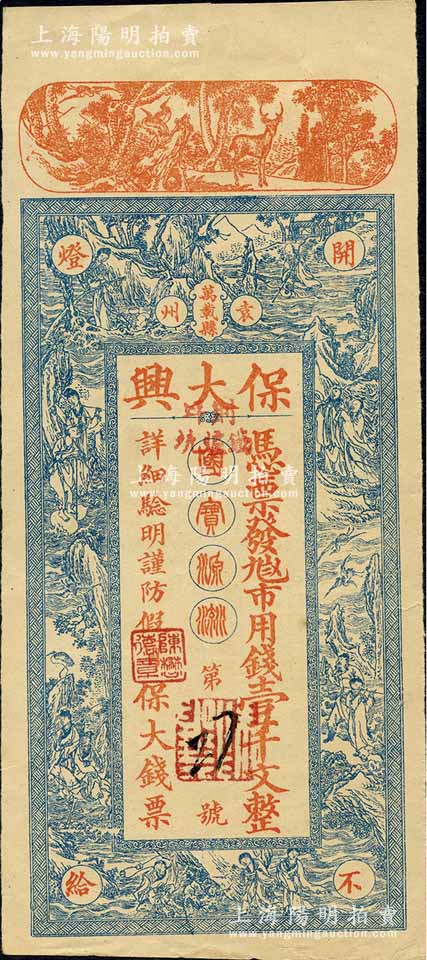 上海陽明拍賣
www.yangmingauction.com
開燈
袁州
萬載縣
保大興
憑票發兑市用錢壹仟文整
寶源
第
27
號
詳細驗明謹防假
保大錢票
不給
上海陽明拍賣
www.yangmingauction.com